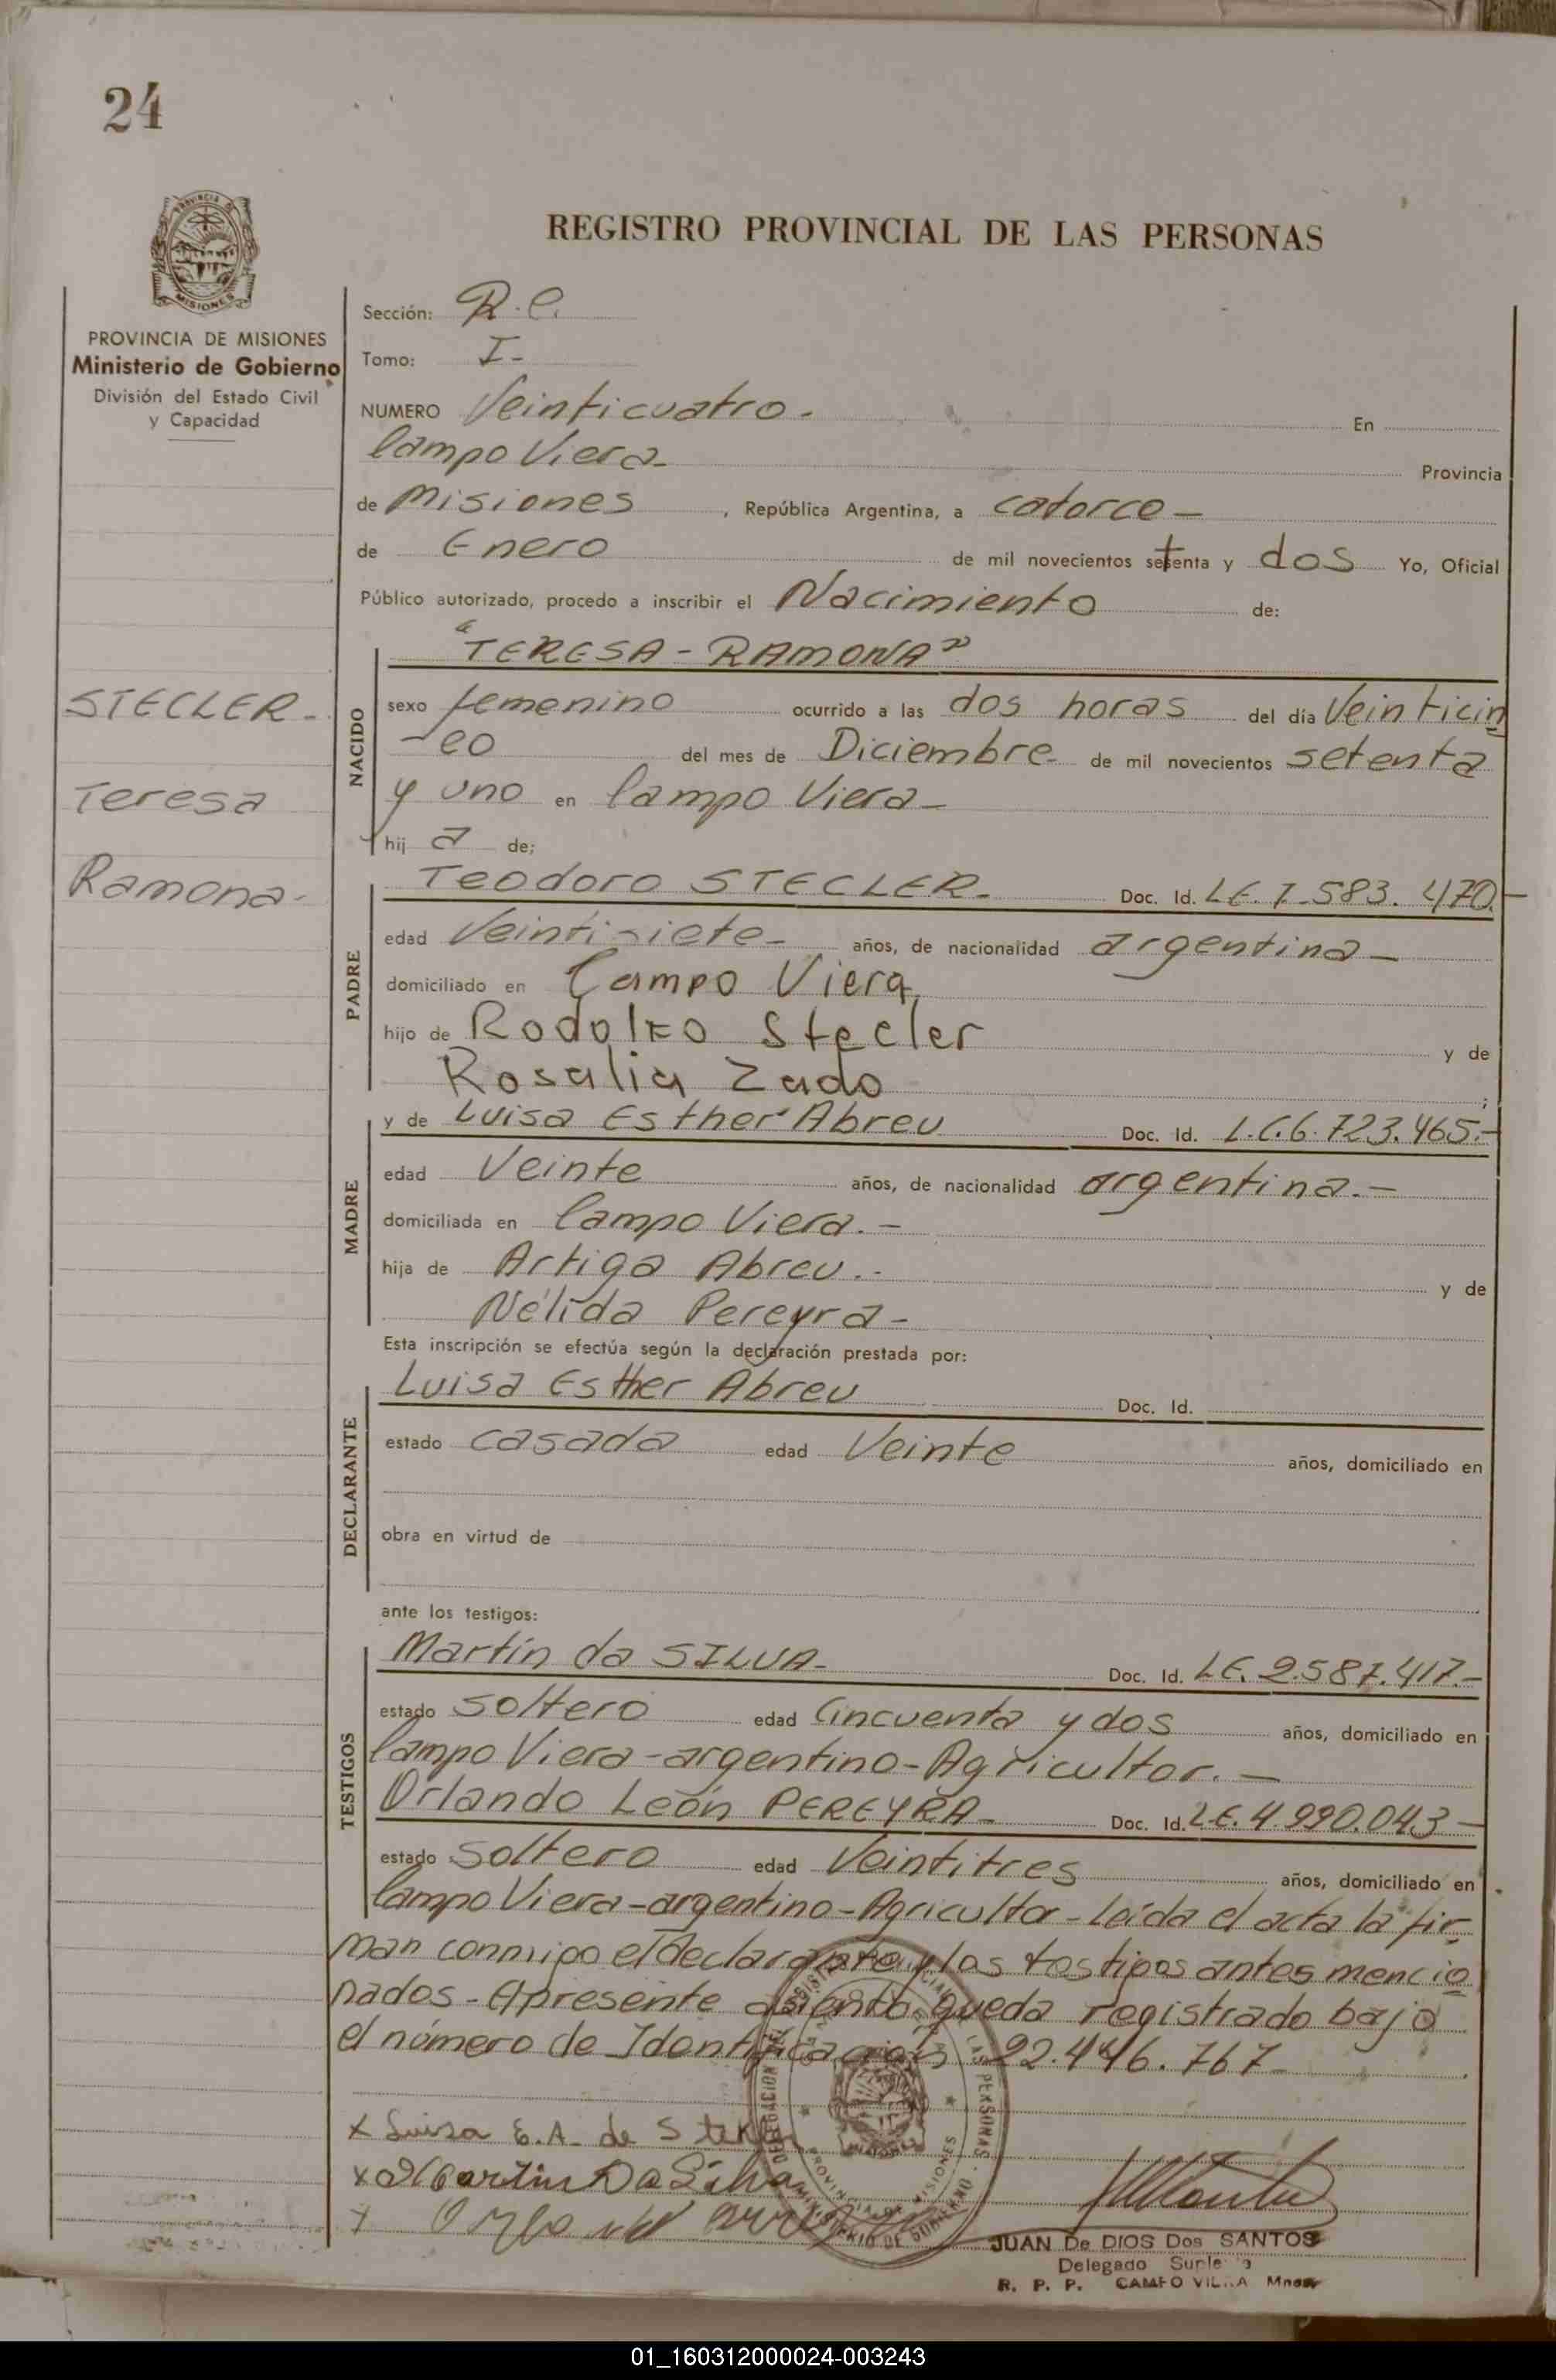 24
REGISTRO PROVINCIAL DE LAS PERSONAS
PROVINCIA DE MISIONES
Ministerio de Gobierno
División del Estado Civil
y Capacidad
STECLER-
Teresa
Ramona-
Sección: R.C.
Tomo: I-
NUMERO Veinticuatro- En
Campo Viera- Provincia
de Misiones, República Argentina, a catorce-
de Enero de mil novecientos setenta y dos Yo, Oficial
Público autorizado, procedo a inscribir el Nacimiento de:
"TERESA-RAMONA"
NACIDO
sexo femenino ocurrido a las dos horas del día Veinticin
-co del mes de Diciembre- de mil novecientos setenta
y uno en Campo Viera-
hija de;
PADRE
Teodoro STECLER- Doc. Id. L.E. 7.583.470.-
edad Veintisiete- años, de nacionalidad argentina-
domiciliado en Campo Viera,
hijo de Rodolfo Stecler y de
Rosalia Zado ;
MADRE
y de Luisa Esther Abreu Doc. Id. L.C.6.723.465.-
edad Veinte años, de nacionalidad argentina.-
domiciliada en Campo Viera.-
hija de Artigo Abreu.- y de
Nélida Pereyra-
Esta inscripción se efectúa según la declaración prestada por:
DECLARANTE
Luisa Esther Abreu Doc. Id.
estado casada edad Veinte años, domiciliado en
obra en virtud de
ante los testigos:
TESTIGOS
Martín da SILVA- Doc. Id. L.E. 2.587.417.-
estado soltero edad Cincuenta y dos años, domiciliado en
Campo Viera-argentino-Agricultor.-
Orlando León PEREYRA- Doc. Id. L.E. 4.990.043-
estado soltero edad Veintitres años, domiciliado en
Campo Viera-argentino-Agricultor-Leída el acta la fir
man conmigo el declarante y los testigos antes mencio
nados-Apresente asiento queda registrado bajo
el número de Identificación 22.446.767-
x Luisa E.A. de
x Martin Da Silva
x
JUAN De DIOS Dos SANTOS
Delegado
R. P. P. CAMPO VIERA Mnes
PROVINCIA DE MISIONES
01_160312000024-003243